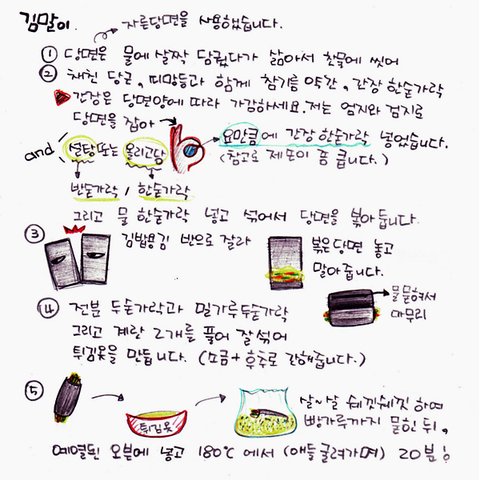 김말이.
자른당면을 사용했습니다.
① 당면은 물에 살짝 담궜다가 삶아서 찬물에 씻어
② 채친 당근, 피망등과 함께 참기름 약간, 간장 한숟가락
간장은 당면양에 따라 가감하세요. 저는 엄지와 검지로
당면을 잡아 → 요만큼에 간장 한숟가락 넣었습니다.
and 설탕또는 올리고당 (참고로 제손이 좀 큽니다.)
반숟가락 / 한숟가락
그리고 물 한숟가락 넣고 섞어서 당면을 볶아둡니다.
③ 김밥용김 반으로 잘라 볶은당면 놓고
말아줍니다.
물묻혀서
마무리
④ 전분 두숟가락과 밀가루두숟가락
그리고 계란 2개를 풀어 잘섞어
튀김옷을 만듭니다. (소금+후추로 간해줍니다.)
⑤ 튀김옷 살~살 쉐낏쉐낏 하여
빵가루까지 묻힌 뒤,
예열된 오븐에 넣고 180℃ 에서 (애들굴려가며) 20분!